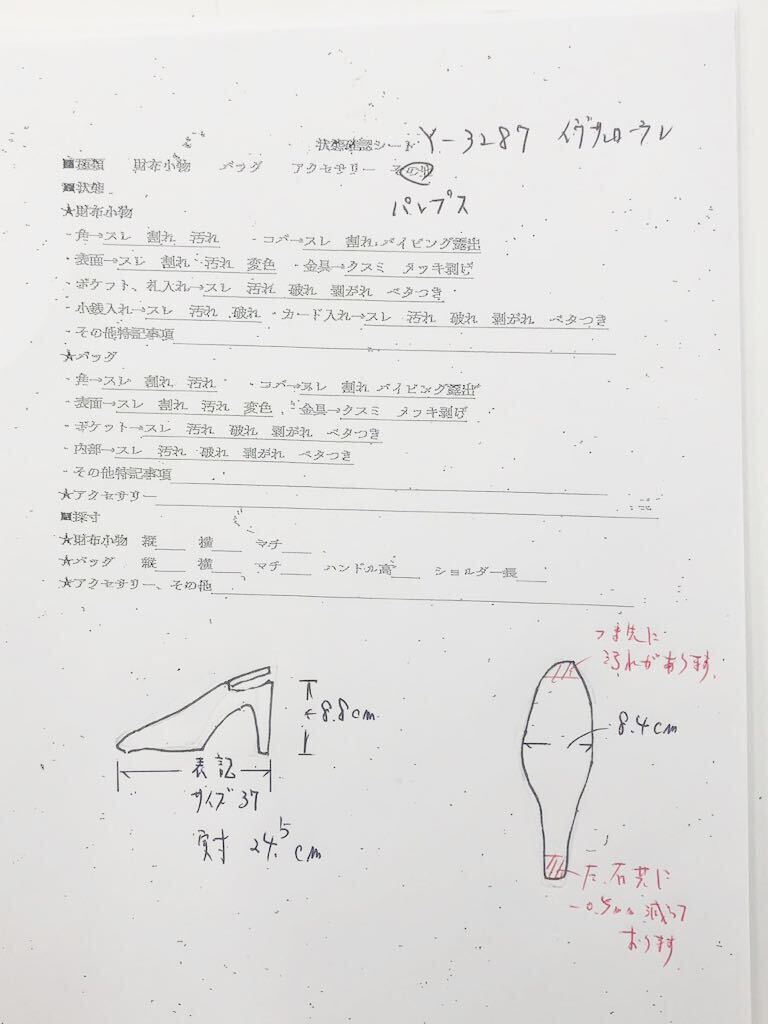 状態確認シート Y-3287 イヴサンローラン
■種類 財布小物 バッグ アクセサリー その他
パンプス
■状態
★財布小物
・角→スレ 割れ 汚れ ・コバ→スレ 割れ パイピング露出
・表面→スレ 割れ 汚れ 変色 ・金具→クスミ メッキ剥げ
・ポケット、札入れ→スレ 汚れ 破れ 剥がれ ベタつき
・小銭入れ→スレ 汚れ 破れ ・カード入れ→スレ 汚れ 破れ 剥がれ ベタつき
・その他特記事項
★バッグ
・角→スレ 割れ 汚れ ・コバ→スレ 割れ パイピング露出
・表面→スレ 割れ 汚れ 変色 ・金具→クスミ メッキ剥げ
・ポケット→スレ 汚れ 破れ 剥がれ ベタつき
・内部→スレ 汚れ 破れ 剥がれ ベタつき
・その他特記事項
★アクセサリー
■採寸
★財布小物 縦 横 マチ
★バッグ 縦 横 マチ ハンドル高 ショルダー長
★アクセサリー、その他
8.8cm
表記
サイズ37
実寸 24.5cm
つま先に
汚れがあります
8.4cm
左、右共に
減って
おります